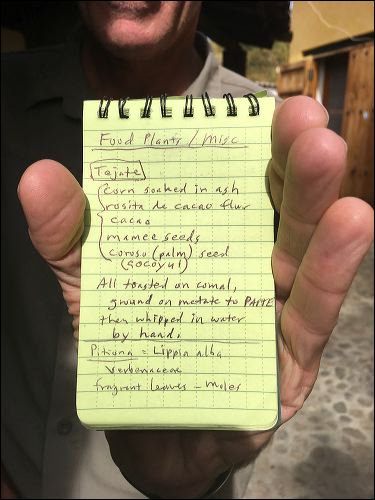 Food Plants / Misc
Tejate
Corn soaked in ash
rosita de cacao flwr
cacao
mamee seeds
coroso (palm) seed
(cocoyul)
All toasted on comal,
ground on metate to PASTE
then whipped in water
by hand.
Pitiona = Lippia alba
Verbenaceae
fragrant leaves - moles